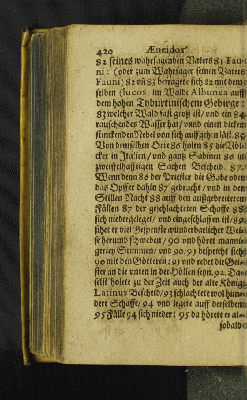 420 Æneidos
82 seines wahrsagenden Vaters 83 Fau-
ni: (oder zum Wahrsager seinen Vaters
Fauni) 82 uñ 83 befragete sich 82 mit dem-
selben (lucos im Walde Albunea auff
dem hohen Tyburtinischem Gebirge:
83 welcher Wald faß groß ist / und ein 84
rauschendes Wasser hat / und einen dicken
stinckenden Nebel von sich auffgehen läst. 85
Von demselben Orte 86 holen 85 die Völ-
cker in Italien / und gantz Sabinen 86 in
zweiffelhafftigen Sachen Bescheid. 87
Wenn denn 86 der Priester die Gabe oder
das Opffer dahin 87 gebracht / und in der
Stillen Nacht 88 auff den außgebreiteten
Fällen 87 der geschlachteten Schaffe 88
sich niedergeleget / und eingeschlaffen ist / 89
sihet er viel Gespenste wunderbarlicher Wei-
se herumb schweben / 90 und höret manni-
gerley Stimmen / und 90. 91 bespricht sich
90 mit den Göttern: 91 und redet die Gei-
ster an die unten in der Höllen seyn. 92. Da-
selbst holete zu der Zeit auch der alte König
Latinus Bescheid / 93 schlachtete wol hun-
dert Schaffe / 94 und legete auff derselben
95 Fälle 94 sich nieder: 95 da hörete er al-
sobald